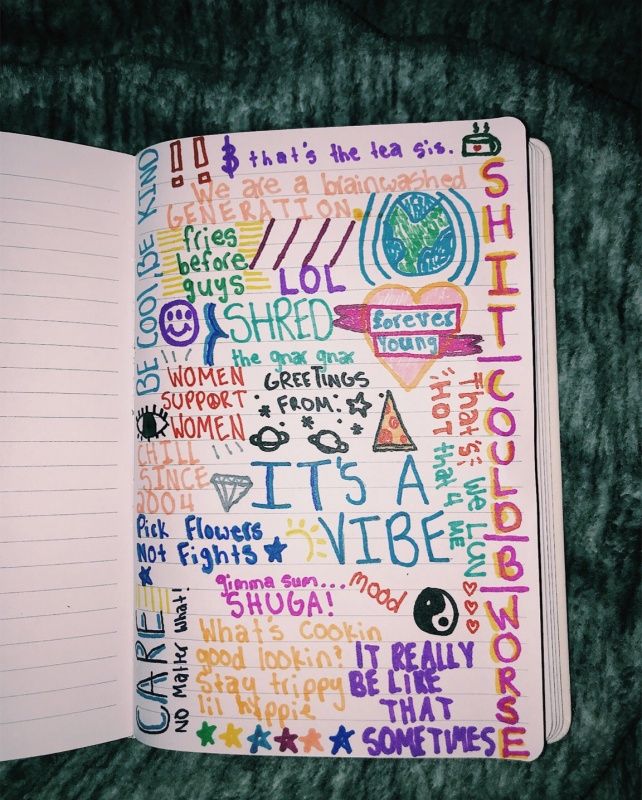 that's the tea sis.
BE COOL, BE KIND
!!
We are a brainwashed
GENERATION.
fries
before
guys
LOL
SHRED
the gnar gnar
forever
young
WOMEN
SUPPORT
WOMEN
GREETINGS
FROM:
CHILL
SINCE
2004
IT'S A
VIBE
"That's
HOT
We LUV
that 4 ME
Pick Flowers
Not Fights
gimma sum...
SHUGA!
mood
CARE
NO Matter What!
What's Cookin
good lookin?
Stay trippy
lil hippie
IT REALLY
BE LIKE
THAT
SOMETIMES
SHIT COULD B WORSE